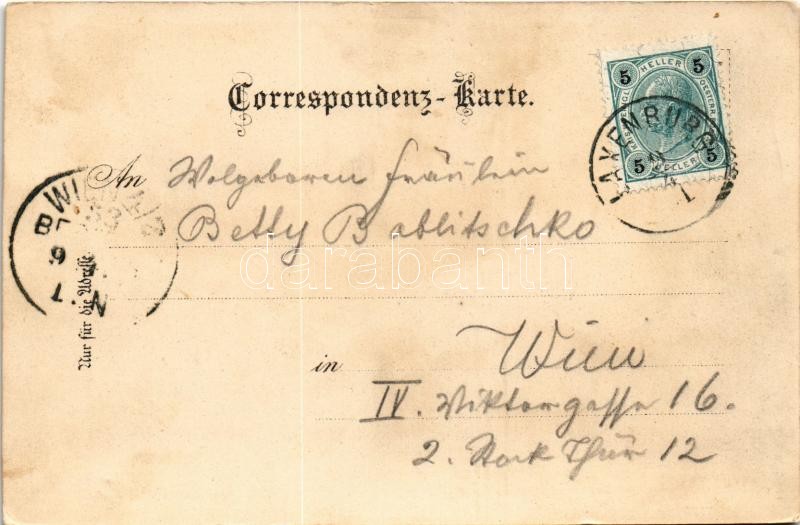 Correspondenz-Karte.
5 HELLER 5
5 HELLER 5
LAXENBURG
1
An Wolgeboren Fräulein
Betty Bablitschko
WIEN 4/2
BESTELLT
9
Nur für die Adresse
darabanth
in Wien
IV. Viktorgasse 16.
2. Stock Thür 12